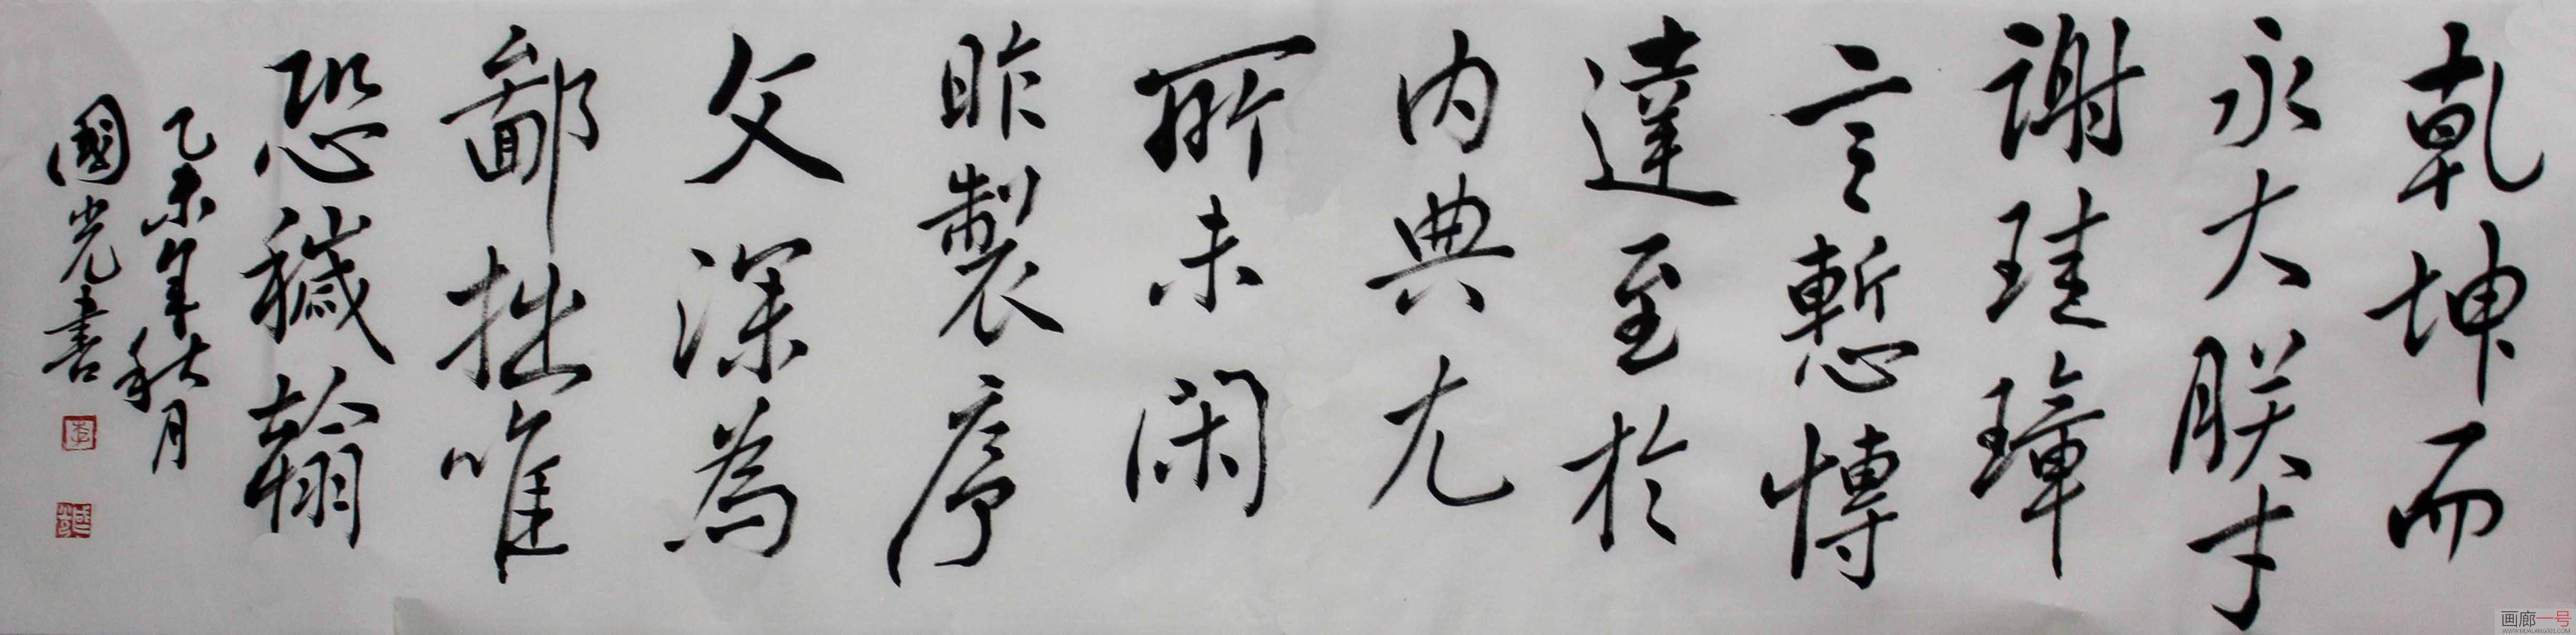 乾坤而
永大朕才
謝珪璋
言慙博
達至於
内典尤
所未闲
昨製序
文深為
鄙拙唯
恐穢翰
乙未年秋月
國光書
画廊一号
WWW.HUALANG01.COM